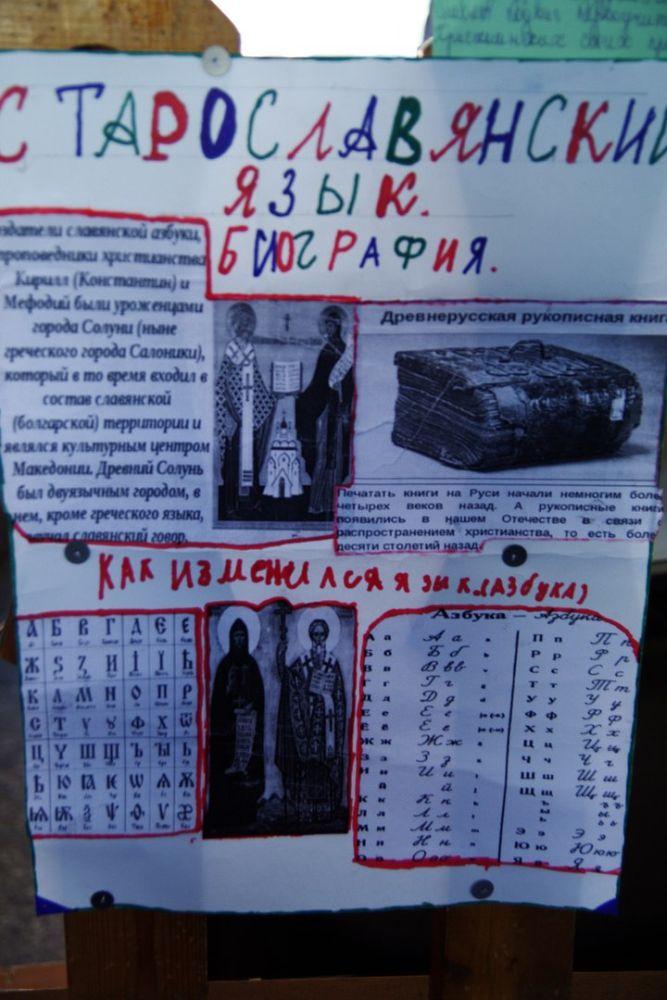 СТАРОСЛАВЯНСКИЙ
ЯЗЫК.
БИОГРАФИЯ.
здатели славянской азбуки,
проповедники христианства
Кирилл (Константин) и
Мефодий были уроженцами
города Солуни (ныне
греческого города Салоники),
который в то время входил в
состав славянской
(болгарской) территории и
являлся культурным центром
Македонии. Древний Солунь
был двуязычным городом, в
нем, кроме греческого языка,
славянский говор.
Древнерусская рукописная книга
Печатать книги на Руси начали немногим боле
четырех веков назад. А рукописные книги
появились в нашем Отечестве в связи с
распространением христианства, то есть боле
десяти столетий назад.
КАК ИЗМЕНИЛСЯ ЯЗЫК.(АЗБУКА)
А Б В Г Д Є Е
Ж Ѕ Ꙁ И І Ї Ћ
К Л М Н О П Р
С Т Ү У Ф Х Ѿ
Ц Ч Ш Щ Ъ Ы Ь
Ѣ Ю Ꙗ Ѥ Ѡ Ѧ Ѫ
Ѩ Ѭ Ѯ Ѱ Ѳ Ѵ
Азбука – Азбука
А а А а П п П п
Б б Б б Р р Р р
В в В в в С с С с
Г г Г г Т т Т т
Д д Д д У у У у
Е е Е е Ф ф Ф ф
Ё ё Ё ё Х х Х х
Ж ж Ж ж Ц ц Ц ц
З з З з Ч ч Ч ч
И и И и Ш ш Ш ш
й й Щ щ Щ щ
К к К к ъ ъ
Л л Л л ы ы
М м М м ь ь
Н н Н н Э э Э э
О о О о Ю ю Ю ю
Я я Я я